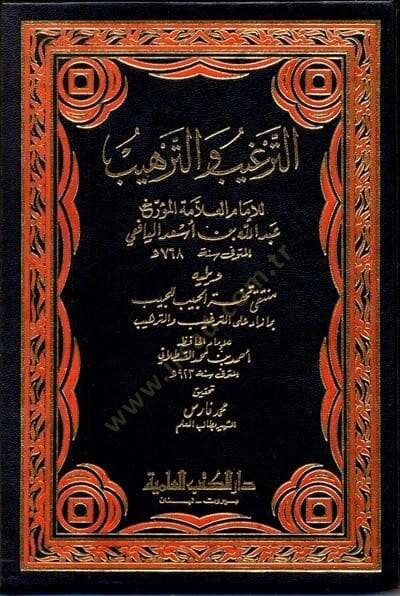 التَّرغيبُ والتَّرهيبُ
للإمام العلامة المؤرخ
عبد الله بن أسعد اليافعي
المتوفى سنة ٧٦٨هـ
ويليه
منتقى تحفة الحبيب للحبيب
بما زاد على الترغيب والترهيب
للإمام الحافظ
أحمد بن محمد القسطلاني
المتوفى سنة ٩٢٣هـ
تحقيق
محمد فارس
الشهير بطالب العلم
دار الكتب العلمية
بيروت - لبنان